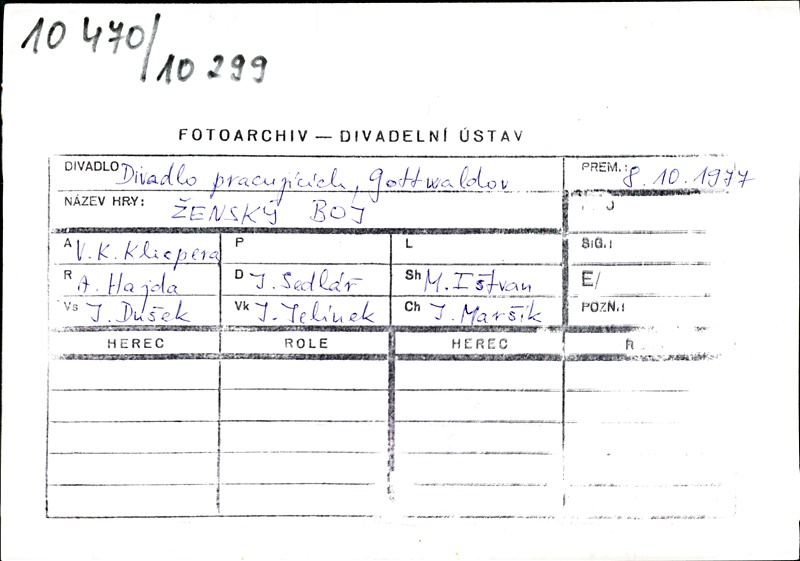 10 470/
10 299
FOTOARCHIV — DIVADELNÍ ÚSTAV
DIVADLO Divadlo pracujících, Gottwaldov PREM.: 8. 10. 1977
NÁZEV HRY: ŽENSKÝ BOJ
A V. K. Klicpera P L SIG.:
R A. Hajda D J. Sedlář Sh M. Ištvan E/
Vs J. Dušek Vk J. Jelínek Ch J. Maršík POZN.:
HEREC ROLE HEREC R